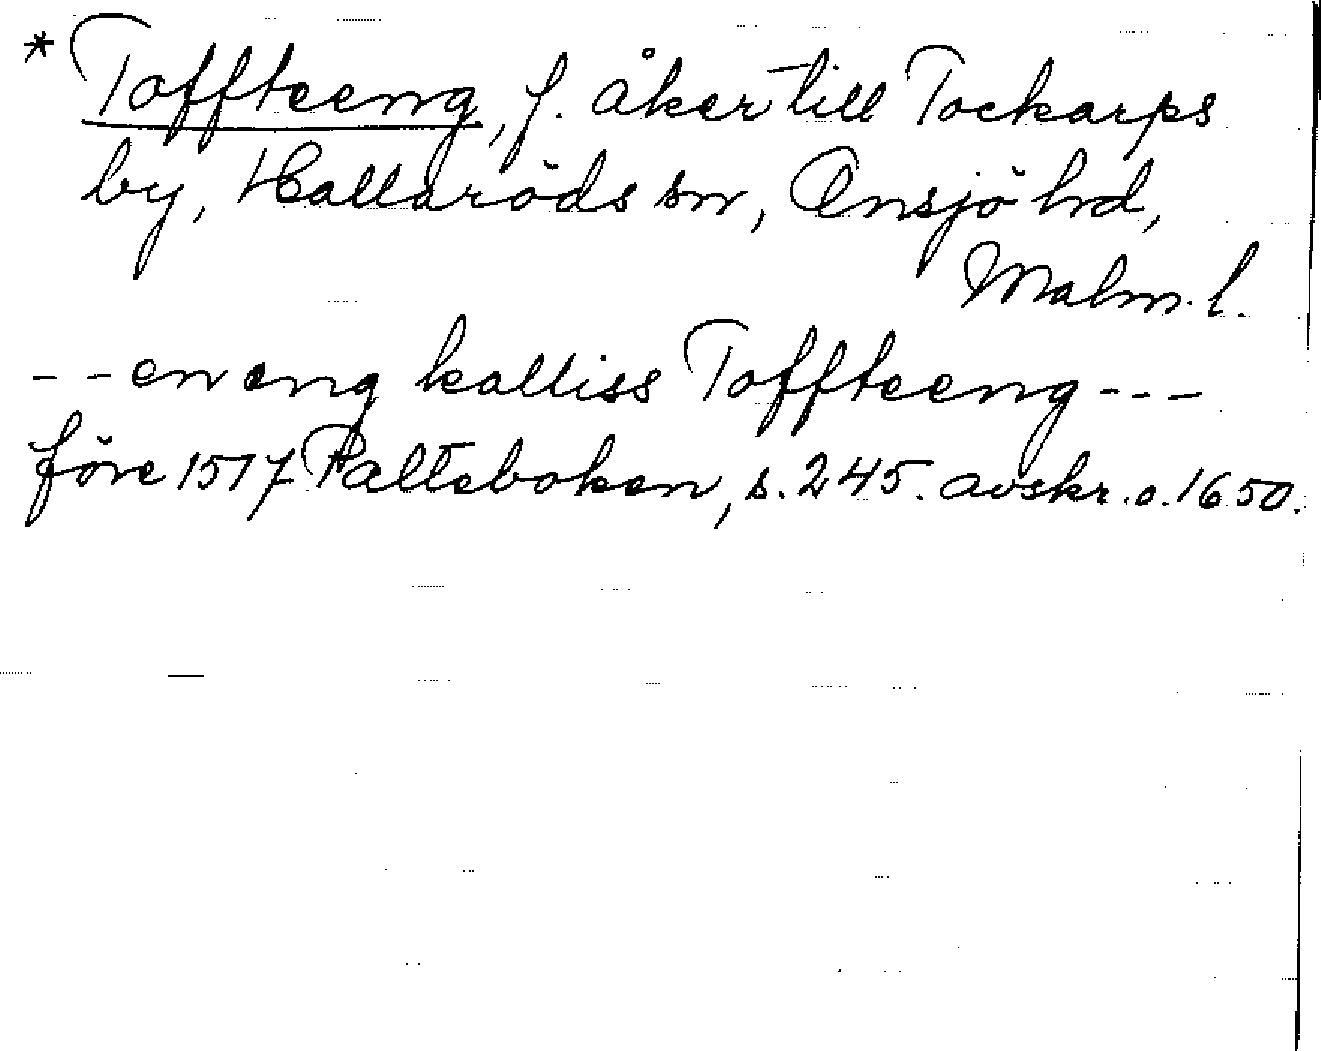 * Toffteeng, f. åker till Tockarps
by, Hallaröds sn, Onsjö hd,
Malm. l.
-- en eng kalliss Toffteeng ---
före 1517 Palteboken, s. 245. avskr. o. 1650.